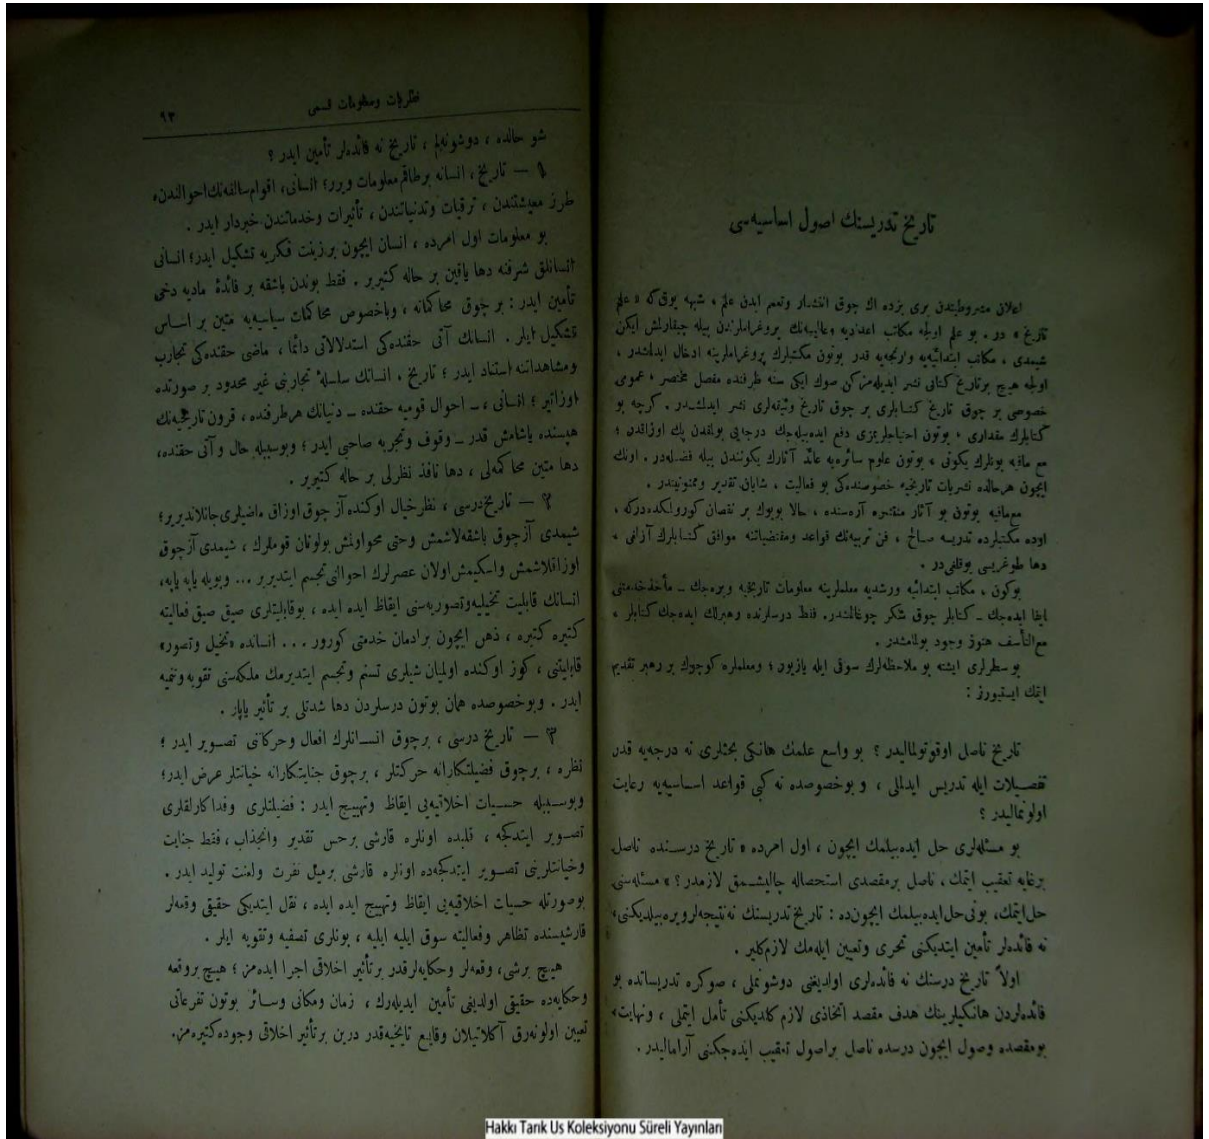 تاریخ تدریسنك اصول اساسیه‌سی
اعلان مشروطیتدن بری بزده اك چوق انتشار وتعمم ایدن علم ، شبهه یوق‌که « علم
تاریخ » در . بو علم اولجه مکاتب اعدادیه وعالیه‌نك پروغراملرندن بیله چیقارلمش ایکن
شیمدی ، مکاتب ابتدائیه‌یه وارنجه‌یه قدر بوتون مکتبلرك پروغراملرینه ادخال ایدلمشدر .
اولجه هیچ بر تاریخ کتابی نشر ایدیله‌مزکن صوك ایکی سنه ظرفنده مفصل مختصر ، عمومی
خصوصی بر چوق تاریخ کتابلری بر چوق تاریخ وثیقه‌لری نشر ایدلمشدر . کرچه بو
کتابلرك مقداری ، بوتون احتیاجلریمزی دفع ایده‌بیله‌جك درجه‌یی بولمقدن پك اوزاقدن ؛
مع مافیه بونلرك یکونی ، بوتون علوم سائره‌یه عائد آثارك یکونندن بیله فضله‌در . اونك
ایچون هر حالده نشریات تاریخیه خصوصنده‌کی بو فعالیت ، شایان تقدیر وممنونیتدر .
مع‌مافیه بوتون بو آثار منتشره آره‌سنده ، حالا بویوك بر نقصان کورولمکده‌درکه ،
اوده مکتبلرده تدریسه صالح ، فن تربیه‌نك قواعد ومقتضیاتنه موافق کتابلرك آزلغی ،
دها طوغریسی یوقلغی‌در .
بوکون ، مکاتب ابتدائیه ورشدیه معلملرینه معلومات تاریخیه ویره‌جك ــ مأخذ خدمتنی
ایفا ایده‌جك ــ کتابلر چوق شکر چوغالمشدر. فقط درسلرنده رهبرلك ایده‌جك کتابلر ،
مع‌التأسف هنوز وجود بولمامشدر .
بو سطرلری ایشته بو ملاحظه‌لرك سوقی ایله یازیورز ؛ ومعلملره کوچوك بر رهبر تقدیم
ایتمك ایستیورز :
تاریخ ناصل اوقوتولمالیدر ؟ بو واسع علمك هانکی بحثلری نه درجه‌یه قدر
تفصیلات ایله تدریس ایدلملی ، و بوخصوصده نه کبی قواعد اساسیه‌یه رعایت
اولونمالیدر ؟
بو مسئله‌لری حل ایده‌بیلمك ایچون ، اول امرده « تاریخ درسنده ناصل
برغایه تعقیب ایتمك ، ناصل بر مقصدی استحصاله چالیشمق لازمدر ؟ » مسئله‌سنی
حل ایتمك، بونی حل ایده‌بیلمك ایچون‌ده : تاریخ تدریسنك نه نتیجه‌لر ویره بیلدیکنی،
نه فائده‌لر تأمین ایتدیکنی تحری وتعیین ایله‌مك لازم‌کلیر .
اولاً تاریخ درسنك نه فائده‌لری اولدیغنی دوشونملی ، صوکره تدریساتده بو
فائده‌لردن هانکیلرینك هدف مقصد اتخاذی لازم کلدیکنی تأمل ایتملی ، ونهایت،
بومقصده وصول ایچون درسده ناصل براصول تعقیب ایده‌جکنی آرامالیدر .
نظریات ومعلومات قسمی
٩٣
شو حالده ، دوشونه‌لم ، تاریخ نه فائده‌لر تأمین ایدر ؟
١ — تاریخ ، انسانه برطاقم معلومات ویرر؛ انسانی، اقوام سالفه‌نك احوالندن،
طرز معیشتندن ، ترقیات وتدنیاتندن ، تأثیرات وخدماتندن خبردار ایدر .
بو معلومات اول امرده ، انسان ایچون برزینت فکریه تشکیل ایدر؛ انسانی
انسانلق شرفنه دها یاقین بر حاله کتیریر . فقط بوندن باشقه بر فائدهٔ مادیه دخی
تأمین ایدر : بر چوق محاکمانه ، وباخصوص محاکمات سیاسیه‌یه متین بر اساس
تشکیل ایلر . انسانك آتی حقنده‌کی استدلالاتی دائما ، ماضی حقنده‌کی تجارب
ومشاهداتنه استناد ایدر ؛ تاریخ ، انسانك سلسلهٔ تجاربنی غیر محدود بر صورتده
اوزاتیر ؛ انسانی ، ــ احوال قومیه حقنده ــ دنیانك هرطرفنده ، قرون تاریخیه‌نك
هپسنده یاشامش قدر ــ وقوف وتجربه صاحبی ایدر ؛ وبوسببله حال و آتی حقنده،
دها متین محاکمه‌لی ، دها نافذ نظرلی بر حاله کتیریر .
٢ — تاریخ درسی ، نظر خیال اوکنده آز چوق اوزاق ماضیلری جانلاندیریر؛
شیمدی آزچوق باشقه‌لاشمش وحتی محو اولمش بولونان قوملرك ، شیمدی آزچوق
اوزاقلاشمش واسکیمش اولان عصرلرك احوالنی تجسم ایتدیریر ... وبویله یاپه یاپه،
انسانك قابلیت تخیلیه‌وتصوریه‌سنی ایقاظ ایده ایده ، بوقابلیتلری صیق صیق فعالیته
کتیره کتیره ، ذهن ایچون برادمان خدمتی کورور ... انسانده «تخیل وتصور»
قابلیتنی ، کوز اوکنده اولمیان شیلری تسنم وتجسم ایتدیرمك ملکه‌سنی تقویه وتنمیه
ایدر . وبوخصوصده همان بوتون درسلردن دها شدتلی بر تأثیر یاپار .
٣ — تاریخ درسی ، برچوق انسانلرك افعال وحرکاتنی تصویر ایدر ؛
نظره ، برچوق فضیلتکارانه حرکتلر ، برچوق جنایتکارانه خیانتلر عرض ایدر؛
وبوسببله حسیات اخلاقیه‌یی ایقاظ وتهییج ایدر : فضیلتلری وفداکارلقلری
تصویر ایتدکجه ، قلبده اونلره قارشی برحس تقدیر وانجذاب ، فقط جنایت
وخیانتلرینی تصویر ایتدکجه‌ده اونلره قارشی برمیل نفرت ولعنت تولید ایدر .
بوصورتله حسیات اخلاقیه‌یی ایقاظ وتهییج ایده ایده ، نقل ایتدیکی حقیقی وقعه‌لر
قارشیسنده تظاهر وفعالیته سوق ایلیه ایلیه ، بونلری تصفیه وتقویه ایلر .
هیچ برشی، وقعه‌لر وحکایه‌لرقدر برتأثیر اخلاقی اجرا ایده‌مز ؛ هیچ بروقعه
وحکایه‌ده حقیقی اولدیغی تأمین ایدیله‌رك ، زمان ومکانی وسائر بوتون تفرعاتی
تعیین اولونه‌رق آکلاتیلان وقایع تاریخیه‌قدر درین برتأثیر اخلاقی وجوده کتیره‌مز.
Hakkı Tarık Us Koleksiyonu Süreli Yayınları